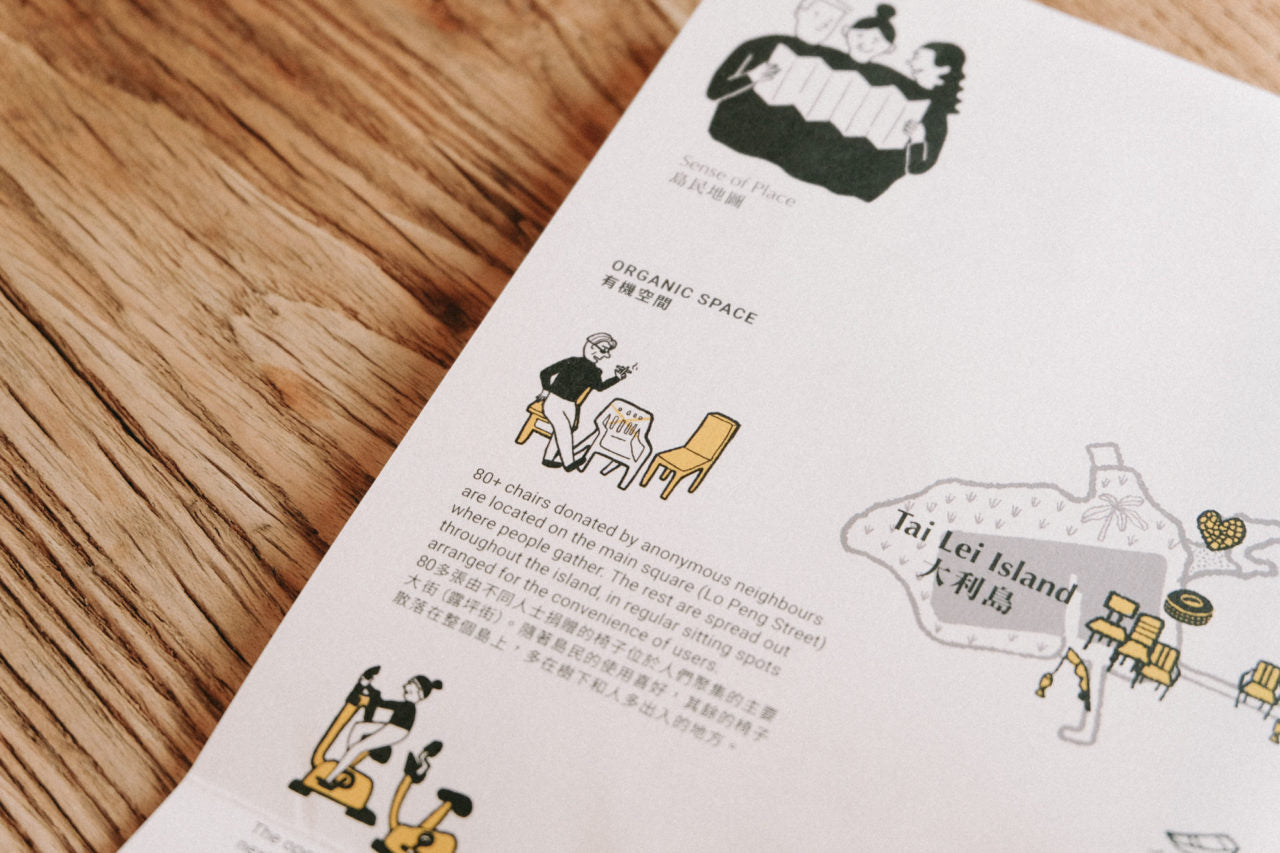 Sense of Place
島民地圖
ORGANIC SPACE
有機空間
80+ chairs donated by anonymous neighbours
are located on the main square (Lo Peng Street)
where people gather. The rest are spread out
throughout the island, in regular sitting spots
arranged for the convenience of users.
80多張由不同人士捐贈的椅子位於人們聚集的主要
大街 (露坪街)。隨著島民的使用喜好，其餘的椅子
散落在整個島上，多在樹下和人多出入的地方。
Tai Lei Island
大利島
The